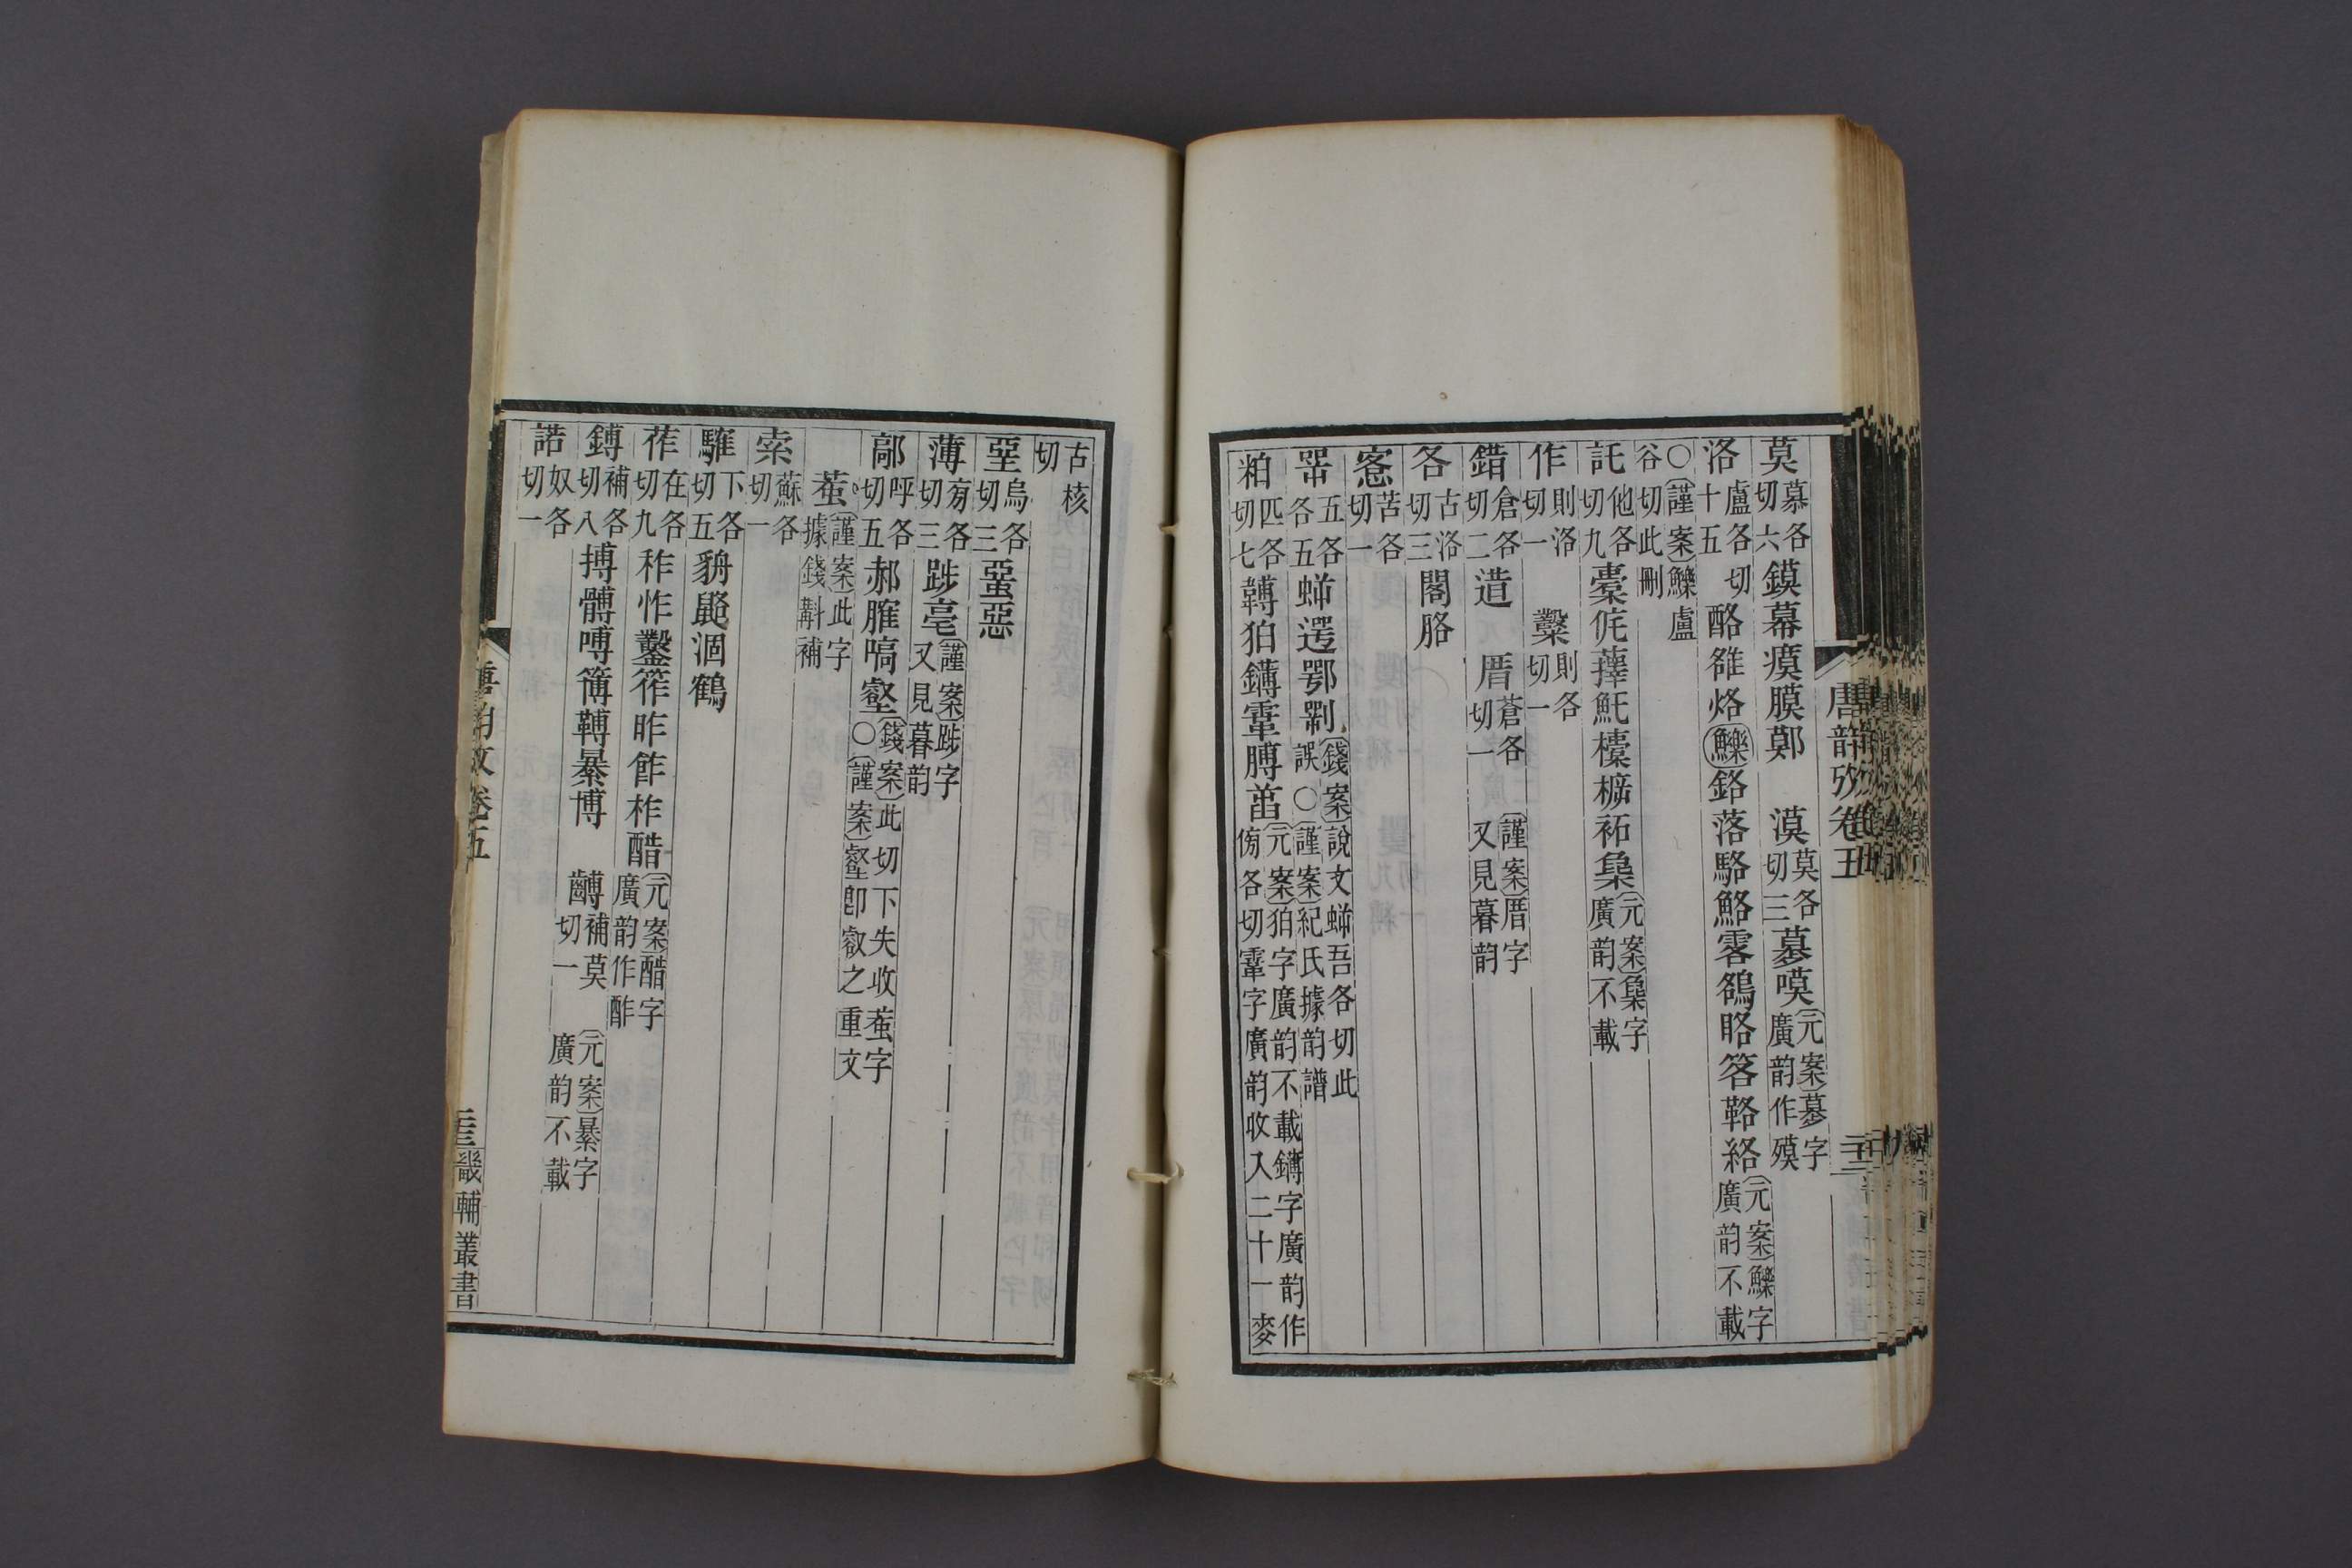 唐韵攷卷五
莫慕各切六鏌幕瘼膜鄚 漠莫各切三蟇嗼元案蟇字廣韵作㱳
洛盧各切十五酪雒烙䥥鉻落駱鮥零鵅䀩笿鞈絡元案䥥字廣韵不載
○謹案䥥盧谷切此刪
託他各切九橐侂蘀魠㯱㰐袥㲋元案㲋字廣韵不載
作則洛切一 糳則各切一
錯倉各切二䢐 厝蒼各切一 謹案厝字又見暮韵
各古洛切三閣胳
愙苦各切一
咢五各各五蝷遻鄂剫錢案說文蝷吾各切此誤○謹案紀氏據韵譜
粕匹各切七䪙狛鑮霏膊䔤元案狛字廣韵不載鑮字廣韵作傍各切霏字廣韵收入二十一麥
古核切
堊烏各切三蝁惡
薄旁各切三䟛亳謹案䟛字又見暮韵
鄗呼各切五郝臛嗃壑錢案此切下失收蒮字○謹案壑卽叡之重文
蒮謹案此字據錢斠補
索蘇各切一
騅下各切五貈𪕗涸鶴
莋在各切九秨怍鑿筰昨飵柞醋元案醋字廣韵作酢
鎛補各切八搏髆嚩簙䪙㬥博 䶈補莫切一 元案㬥字廣韵不載
諾奴各切一
唐韵攷卷五
畿輔叢書